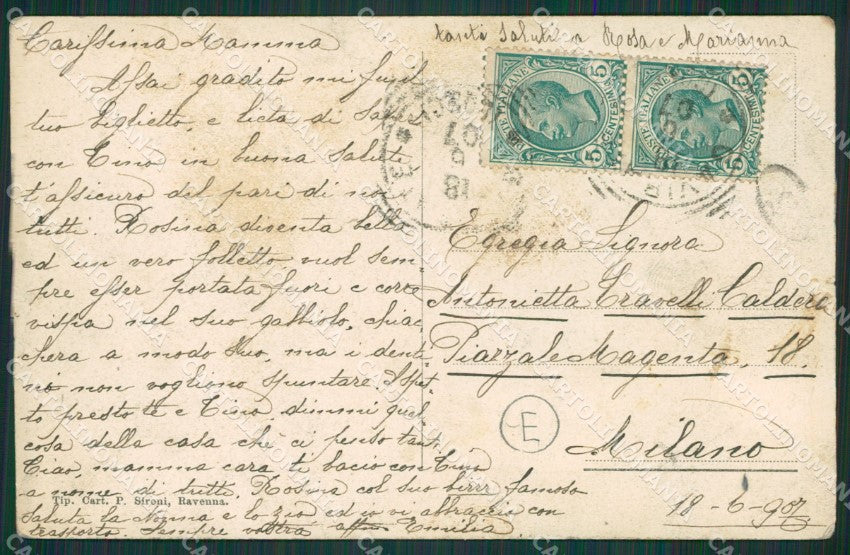 tanti saluti da Rosa e Marianna
Carissima Mamma
Assai gradito mi fu il
tuo biglietto, e lieta di saper
con Tino in buona salute
t'assicuro del pari di noi
tutti. Rosina diventa bella
ed un vero folletto vuol sem-
pre esser portata fuori e corre
vispa nel suo gabbiolo, chiac
chera a modo suo, ma i denti
ni non vogliono spuntare. Aspet
to presto te e Tino. dimmi qual
cosa della casa chè ci penso tanto
Ciao, mamma cara ti bacio con Tino
a nome di tutti, Rosina col suo birrr famoso
Saluta la Nonna e lo zio ed io vi abbraccio con
trasporto. Sempre vostra aff Emilia
Tip. Cart. P. Sironi, Ravenna.
POSTE ITALIANE
CENTES 5
POSTE ITALIANE
CENTES 5
18 6 07
Egregia Signora
Antonietta Travelli Caldera
Piazzale Magenta, 18.
Milano
E
18-6-907
CARTOLINOMANIA